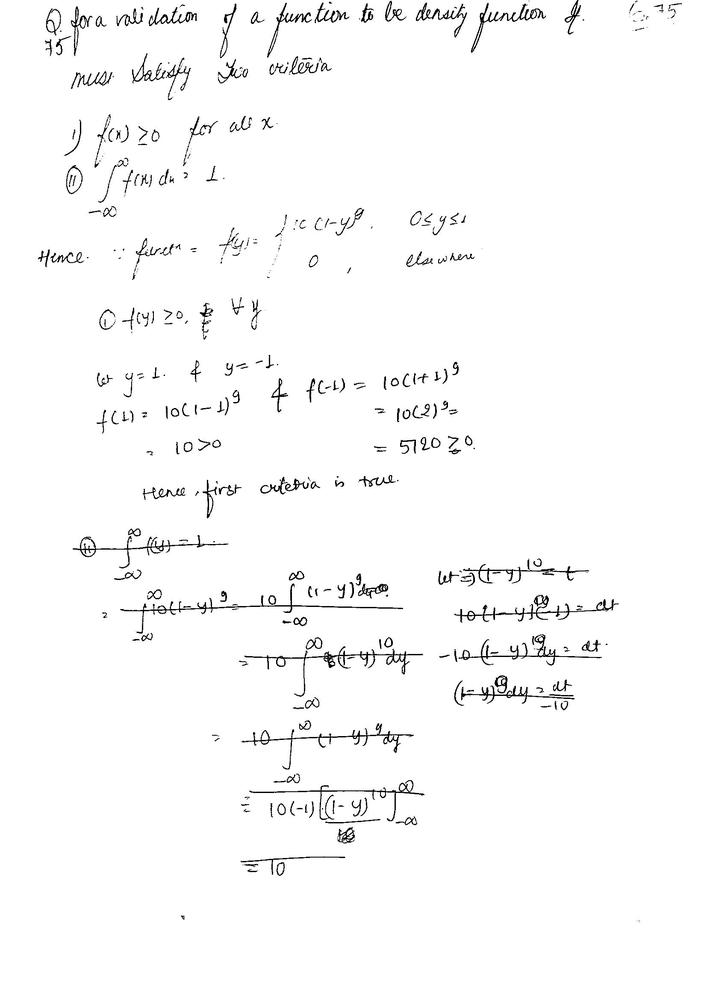 Q. for a validation of a function to be density function it.
75
must Satisfy Two criteria
I) f(x) ≥0 for all x.
II ∫ f(x) dx = 1.
∞
-∞
Hence. ∵ functn = f(y) = { 10 (1-y)⁹, 0≤y≤1
0, elsewhere
① f(y) ≥0, ∀ y
let y=1. & y=-1.
f(1) = 10(1-1)⁹ & f(-1) = 10(1+1)⁹
= 10(2)⁹=
= 10>0 = 5120 ≥0.
Hence, first criteria is true.
II ∫ f(y) = 1.
∞
-∞
= ∫ 10(1-y)⁹ = 10 ∫ (1-y)⁹ let ⇒ (1-y)¹⁰ = t
∞ ∞
-∞ -∞
(-1) = dt
= 10 ∫ (1-y)¹⁰ dy -10 (1-y) dy = dt.
∞
-∞
(1-y) dy = dt/-10
= 10 ∫ (1-y)⁹ dy
∞
-∞
= 10(-1) [(1-y)¹⁰]
∞
-∞
= 10